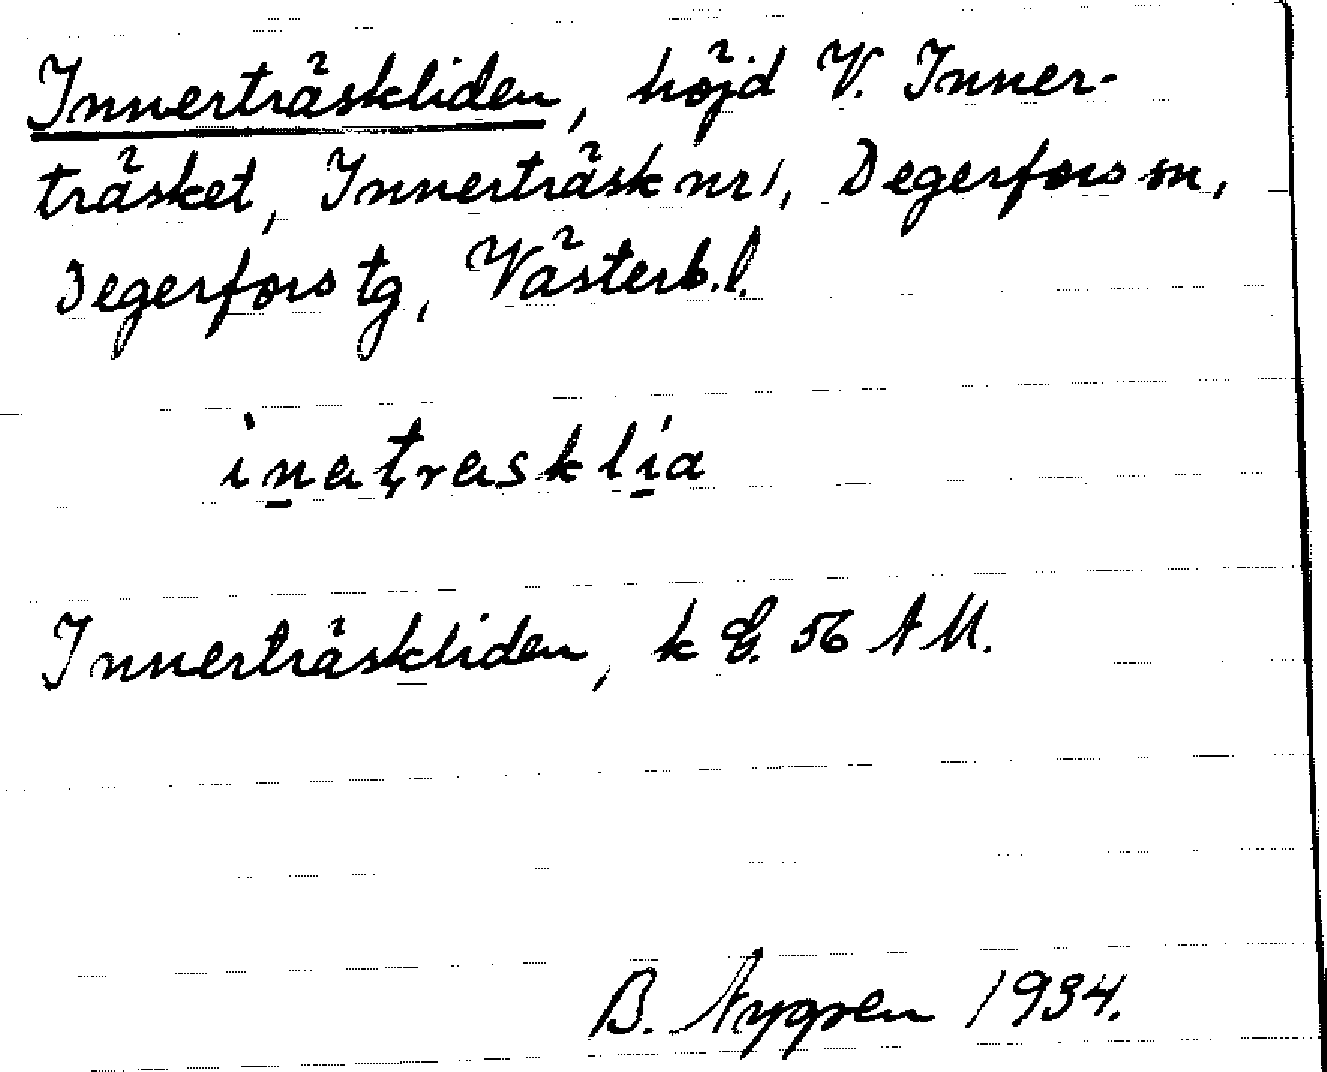 Innerträskliden, höjd V. Inner-
träsket, Innerträsk nr 1, Degerfors sn,
Degerfors tg, Västerb. l.
inatrasklia
Innerträskliden, k E. 56 A M.
B. Nygren 1934.